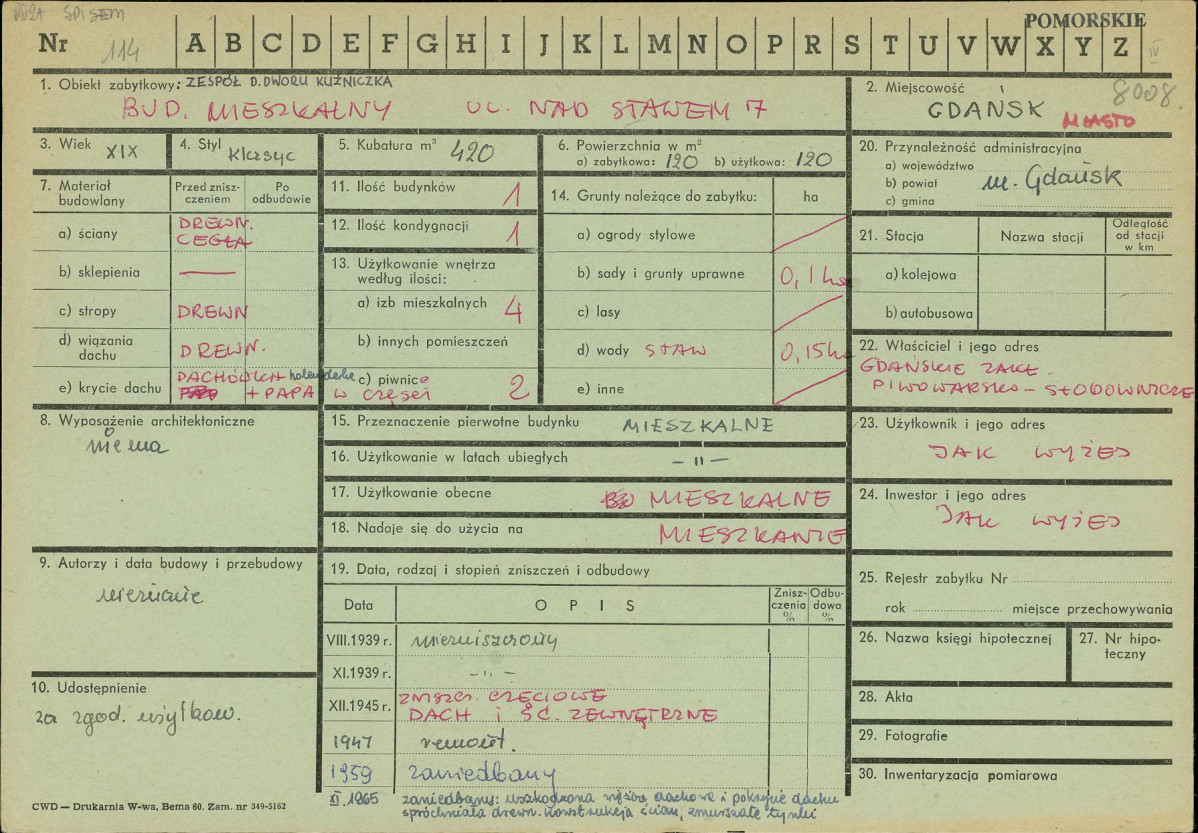 SPISEM
POMORSKIE
Nr 114 A B C D E F G H I J K L M N O P R S T U V W X Y Z
IV
1. Obiekt zabytkowy: ZESPÓŁ D. DWORU KUŹNICZKA
BUD. MIESZKALNY UL. NAD STAWEM 7
2. Miejscowość 8008
GDAŃSK MIASTO
3. Wiek XIX
4. Styl Klasyc
5. Kubatura m³ 420
6. Powierzchnia w m²
a) zabytkowa: 120 b) użytkowa: 120
20. Przynależność administracyjna
a) województwo
b) powiat m. Gdańsk
c) gmina
7. Materiał budowlany
Przed zniszczeniem
Po odbudowie
a) ściany DREWN. CEGŁA
b) sklepienia —
c) stropy DREWN
d) wiązania dachu DREWN.
e) krycie dachu DACHÓWKA holenderka
+ PAPA w części
11. Ilość budynków 1
12. Ilość kondygnacji 1
13. Użytkowanie wnętrza według ilości:
a) izb mieszkalnych 4
b) innych pomieszczeń
c) piwnice 2
14. Grunty należące do zabytku: ha
a) ogrody stylowe
b) sady i grunty uprawne 0,1 ha
c) lasy
d) wody STAW 0,15 ha
e) inne
21. Stacja
Nazwa stacji
Odległość od stacji w km
a) kolejowa
b) autobusowa
22. Właściciel i jego adres
GDAŃSKIE ZAKŁ.
PIWOWARSKO - SŁODOWNICZE
8. Wyposażenie architektoniczne
nie ma
15. Przeznaczenie pierwotne budynku MIESZKALNE
16. Użytkowanie w latach ubiegłych — " —
17. Użytkowanie obecne MIESZKALNE
18. Nadaje się do użycia na MIESZKANIE
23. Użytkownik i jego adres
JAK WYŻEJ
24. Inwestor i jego adres
JAK WYŻEJ
9. Autorzy i data budowy i przebudowy
nieznanie
10. Udostępnienie
za zgod. użytkow.
19. Data, rodzaj i stopień zniszczeń i odbudowy
Data
OPIS
Zniszczenia %
Odbudowa %
VIII.1939 r. niezniszczony
XI.1939 r. - " -
XII.1945 r. ZNISZCZ. CZĘCIOWE
DACH i ŚC. ZEWNĘTRZNE
1947 remont.
1959 zaniedbany
XI.1965 zaniedbany: uszkodzona więźba dachowa i pokrycie dachu
spróchniała drewn. konstrukcja ścian, zmurszałe tynki
25. Rejestr zabytku Nr
rok miejsce przechowywania
26. Nazwa księgi hipotecznej
27. Nr hipoteczny
28. Akta
29. Fotografie
30. Inwentaryzacja pomiarowa
CWD — Drukarnia W-wa, Bema 60. Zam. nr 349-5162